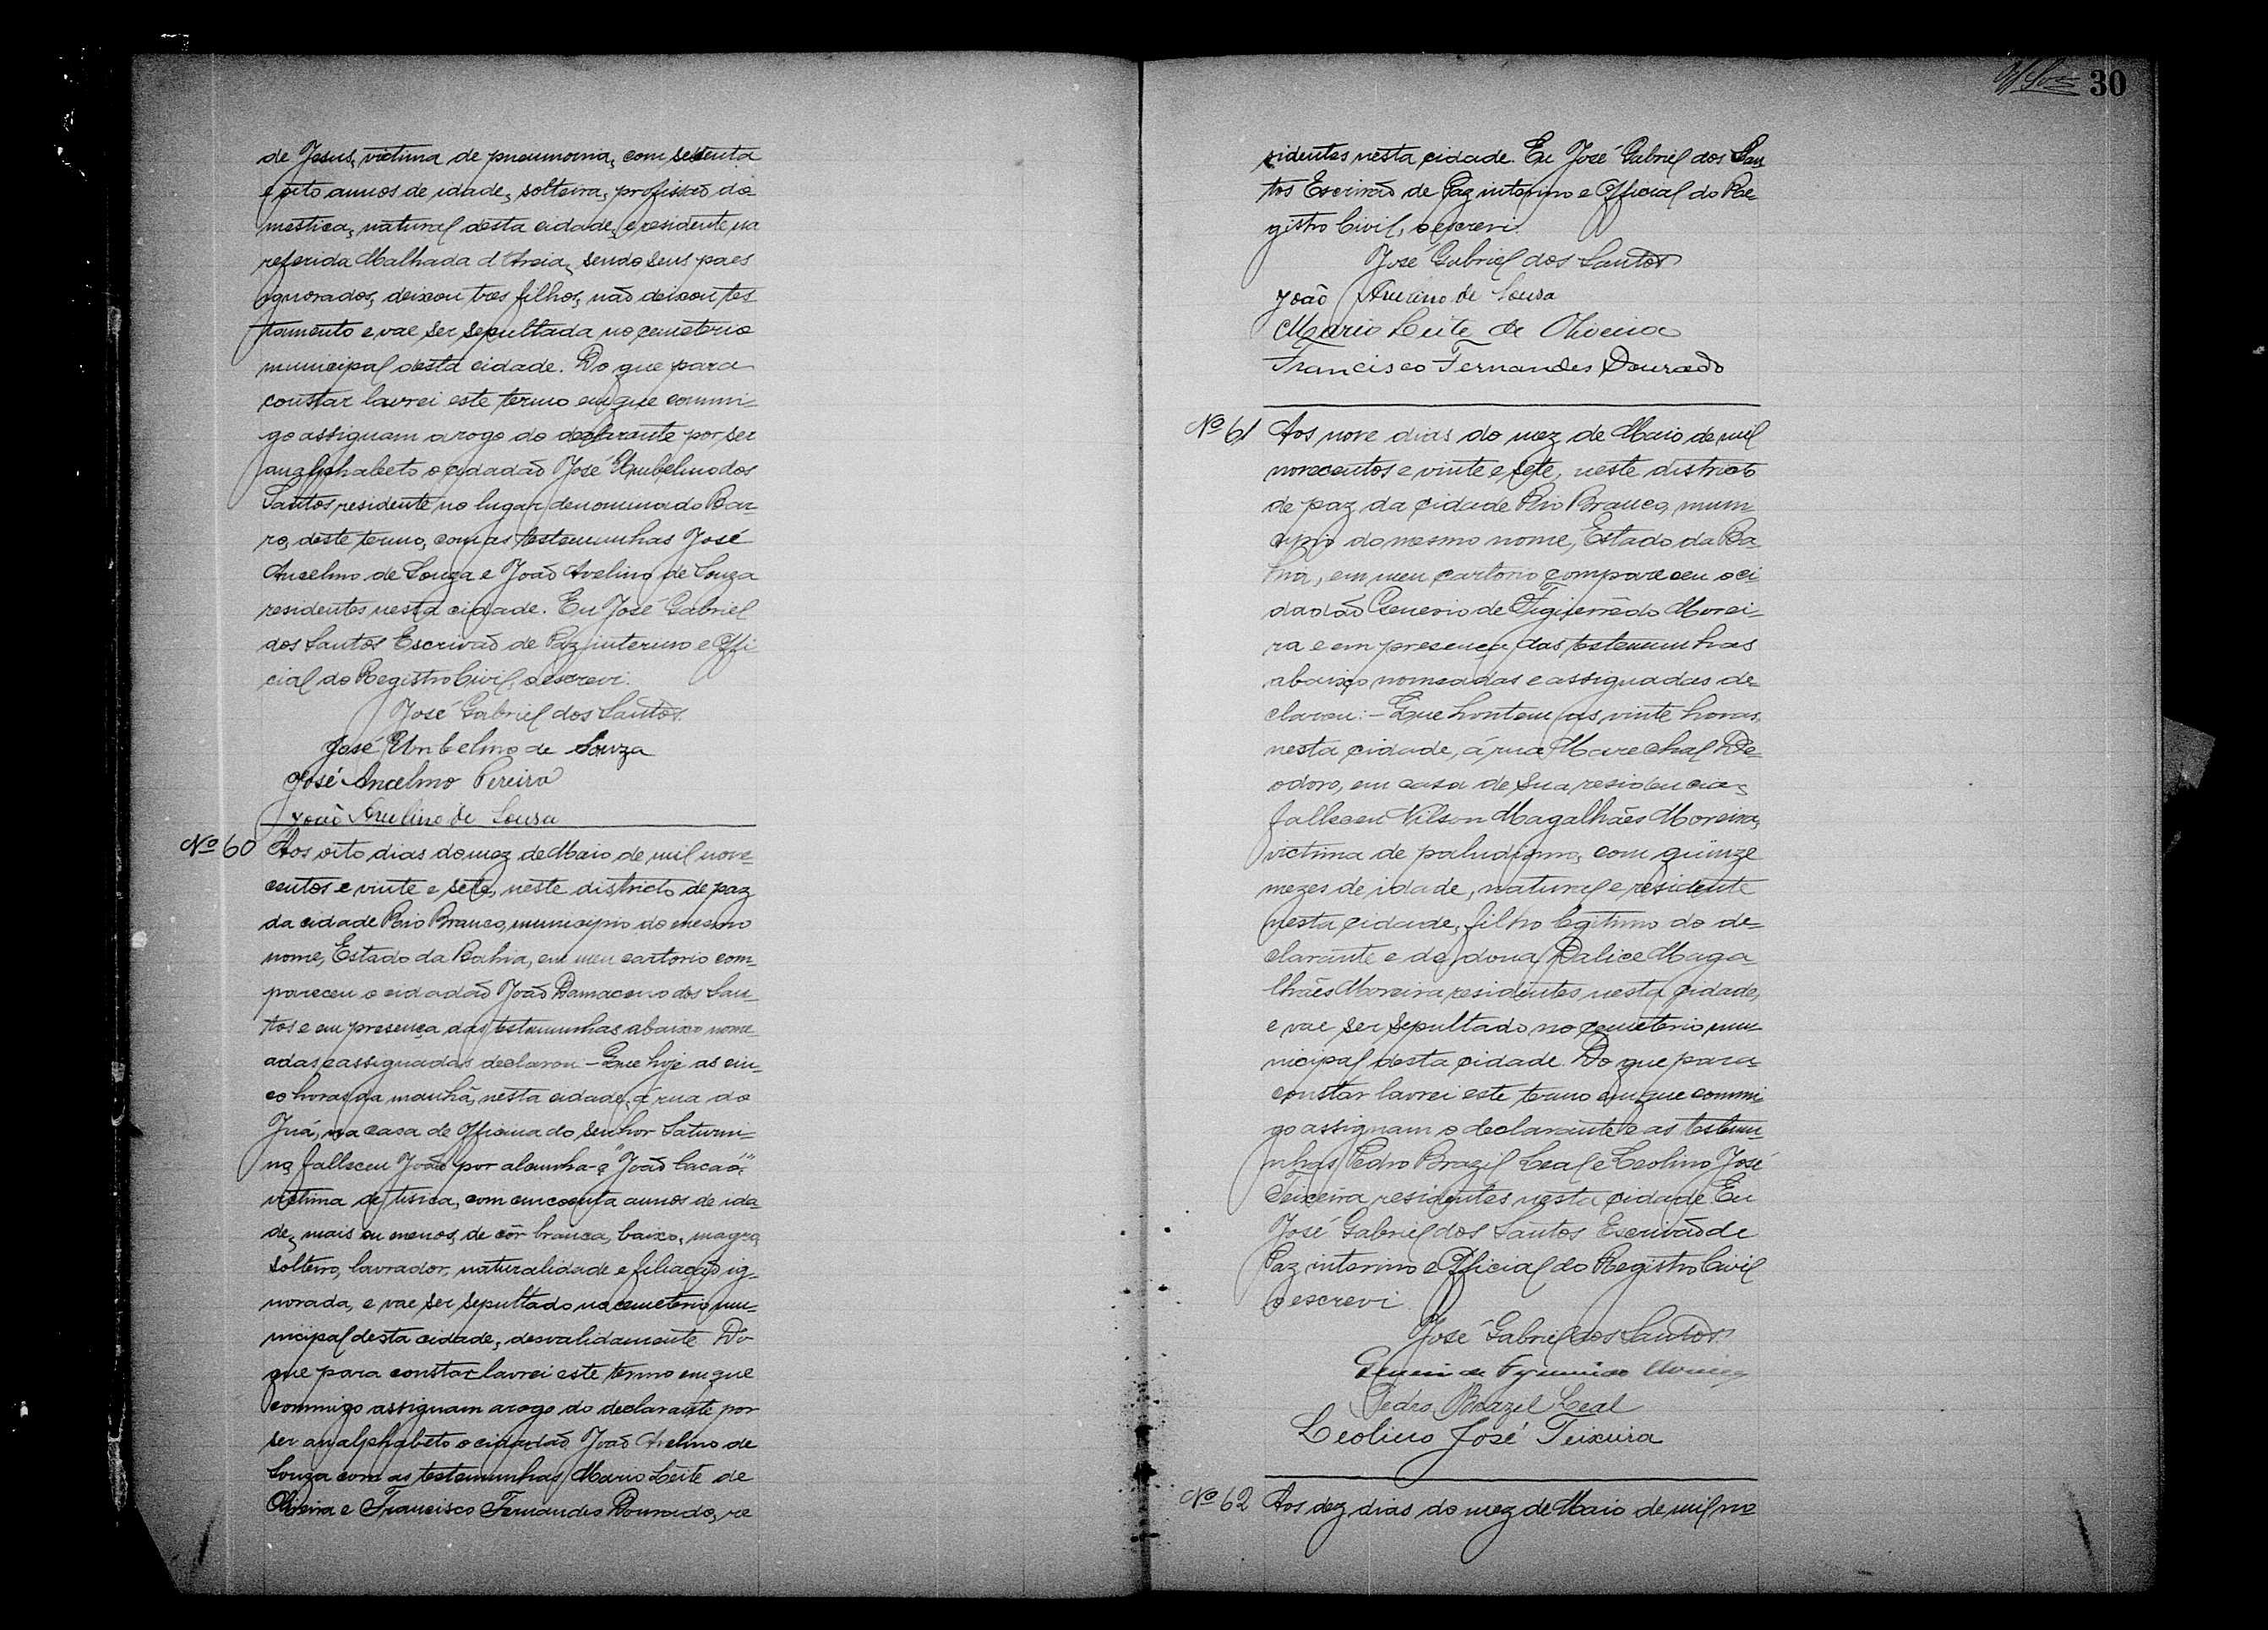 de Jesus, victima de pneumonia, com setenta
e oito annos de idade, solteira, profissão do
mestica, natural desta cidade, e residente na
referida Malhada d'Areia, sendo seus paes
ignorados, deixou tres filhos, não deixou tes
tamento e vae ser sepultada no cemeterio
municipal desta cidade. Do que para
constar lavrei este termo em que commi-
go assignam a rogo do declarante por ser
analphabeto o cidadão José Umbelino dos
Santos residente no lugar denominado Bar-
ro, deste termo, com as testemunhas José
Ancelmo de Souza e João Avelino de Souza
residentes nesta cidade. Eu José Gabriel
dos Santos Escrivão de Paz interino e Offi
cial do Registro Civil, o escrevi.
José Gabriel dos Santos
José Umbelino de Souza
José Ancelmo Pereira
João Avelino de Sousa
Nº 60 Aos oito dias do mez de Maio de mil nove-
centos e vinte e sete, neste districto de paz
da cidade Rio Branco, municipio do mesmo
nome, Estado da Bahia, em meu cartorio com-
pareceu o cidadão João Damaceno dos San-
tos e em presença das testemunhas abaixo nome
adas e assignadas declarou - Que hoje as cin-
co horas da manhã, nesta cidade, á rua do
Juá, na casa de Officina do senhor Saturni-
no falleceu João por alcunha - "João Cacaó"
victima de tisica, com cincoenta annos de ida-
de, mais ou menos, de côr branca, baixo, magro,
solteiro, lavrador, naturalidade e filiação ig-
norada, e vae ser sepultado no cemeterio mu-
nicipal desta cidade, desvalidamente. Do
que para constar lavrei este termo em que
commigo assignam a rogo do declarante por
ser analphabeto o cidadão João Avelino de
Souza com as testemunhas Mario Leite de
Oliveira e Francisco Fernandes Dourado, re
30
sidentes nesta cidade. Eu José Gabriel dos San
tos Escrivão de Paz interino e Official do Re-
gistro Civil, o escrevi.
José Gabriel dos Santos
João Avelino de Sousa
Mario Leite de Oliveira
Francisco Fernandes Dourado
Nº 61 Aos nove dias do mez de Maio de mil
novecentos e vinte e sete, neste districto
de paz da cidade Rio Branco, muni-
cipio do mesmo nome, Estado da Ba-
hia, em meu cartorio compareceu o ci-
dadão Genesio de Figuerrêdo Morei-
ra e em presença das testemunhas
abaixo nomeadas e assignadas de-
clarou: - Que hontem as vinte horas,
nesta cidade, á rua Marechal De-
odoro, em casa de sua residencia,
falleceu Nilson Magalhães Moreira,
victima de paludismo, com quinze
mezes de idade, natural e residente
nesta cidade, filho legitimo do de-
clarante e de dona Dalice Maga-
lhães Moreira, residentes nesta cidade,
e vae ser sepultado no cemeterio mu-
nicipal desta cidade. Do que para
constar lavrei este termo em que commi
go assignam o declarante e as testemu-
nhas Pedro Brazil Leal e Leolino José
Teixeira residentes nesta cidade. Eu
José Gabriel dos Santos Escrivão de
Paz interino e Official do Registro Civil
o escrevi.
José Gabriel dos Santos
Pedro Brazil Leal
Leolino José Teixeira
Nº 62 Aos dez dias do mez de Maio de mil no